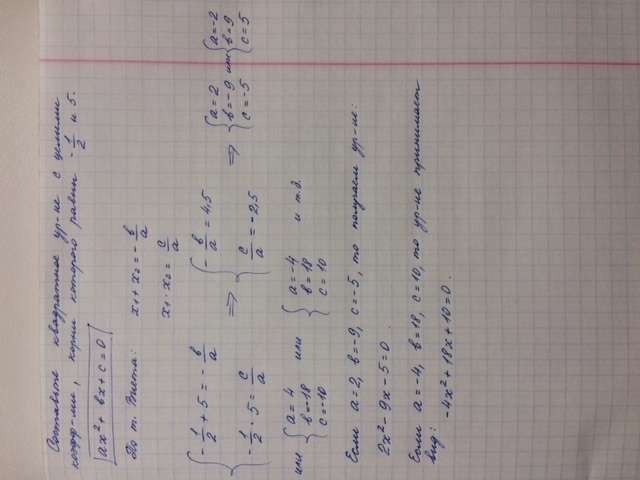 Составьте квадратное ур-ние с целыми
коэф-ми, корни которого равны -1/2 и 5.
ax² + bx + c = 0
По т. Виета: x₁ + x₂ = -b/a
x₁ · x₂ = c/a
{ -1/2 + 5 = -b/a ⇒ { -b/a = 4,5 ⇒ { a = 2 или { a = -2
b = -9 b = 9
{ -1/2 · 5 = c/a { c/a = -2,5 c = -5 c = 5
или { a = 4 или { a = -4 и т.д.
b = -18 b = 18
c = -10 c = 10
Если a = 2, b = -9, c = -5, то получаем ур-ие:
2x² - 9x - 5 = 0.
Если a = -4, b = 18, c = 10, то ур-ие принимает
вид: -4x² + 18x + 10 = 0.